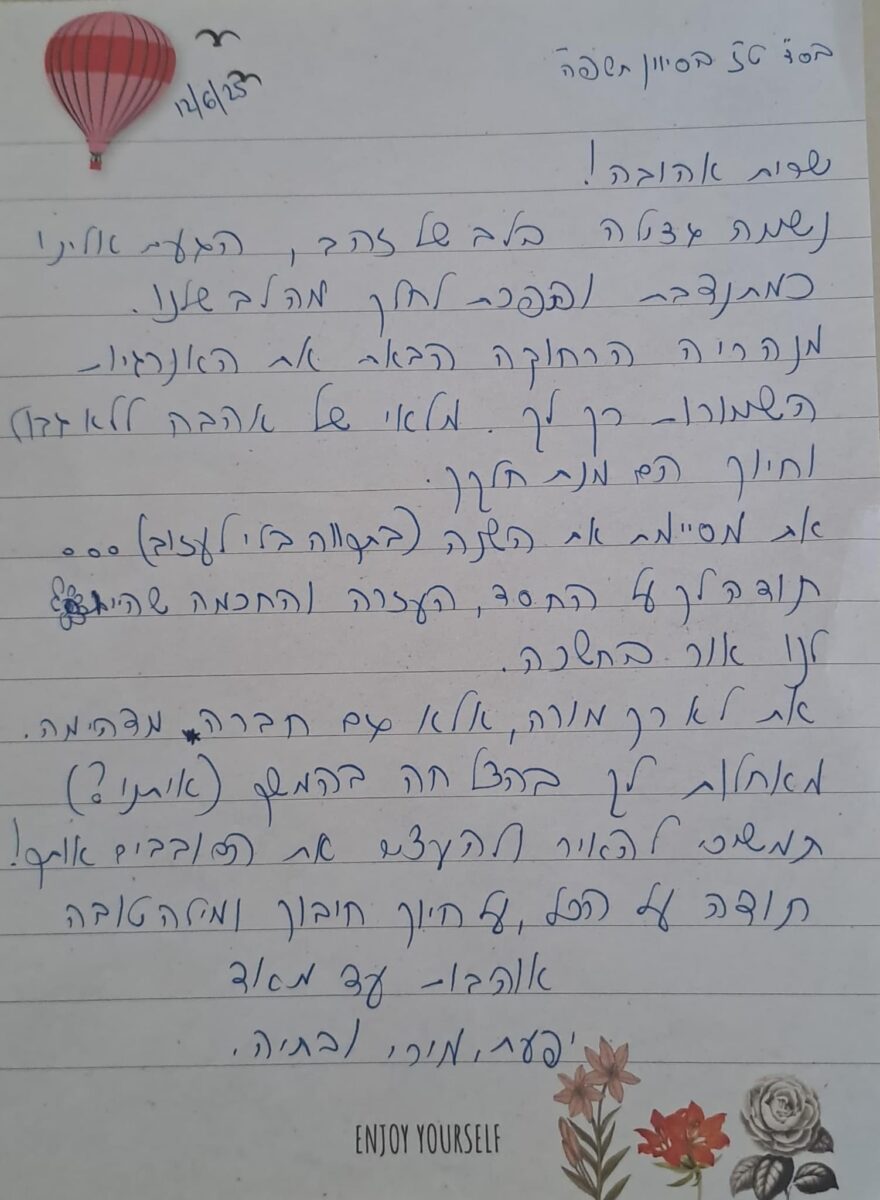 בס"ד טז בסיוון תשפ"ה
12/6/25
שרית אהובה!
נשמה גדולה בלב של זהב, הגעת אלינו
כמתנדבת והפכת לחלק מהלב שלנו.
מנהריה הרחוקה הבאת את האנרגיות
השמורות רק לך. מלאי של אהבה ללא גבול
וחיוך הם מנת חלקך.
את מסיימת את השנה (בתקווה בלי לעזוב)...
תודה לך על החסד, העזרה והחכמה שהיית
לנו אור בחשכה.
את לא רק מורה, אלא גם חברה מדהימה.
מאחלות לך בהצלחה בהמשך (איתנו?)
תמשיכי להאיר ולהעצים את הסובבים אותך!
תודה על הכל, על חיוך חיבוק ומילה טובה
אוהבות עד מאוד
יפעת, מירי ובתיה.
ENJOY YOURSELF